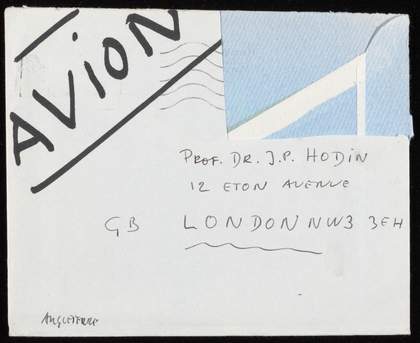 AVION
PROF. DR. J.P. HODIN
12 ETON AVENUE
GB LONDON NW3 3EH
ANGLETERRE